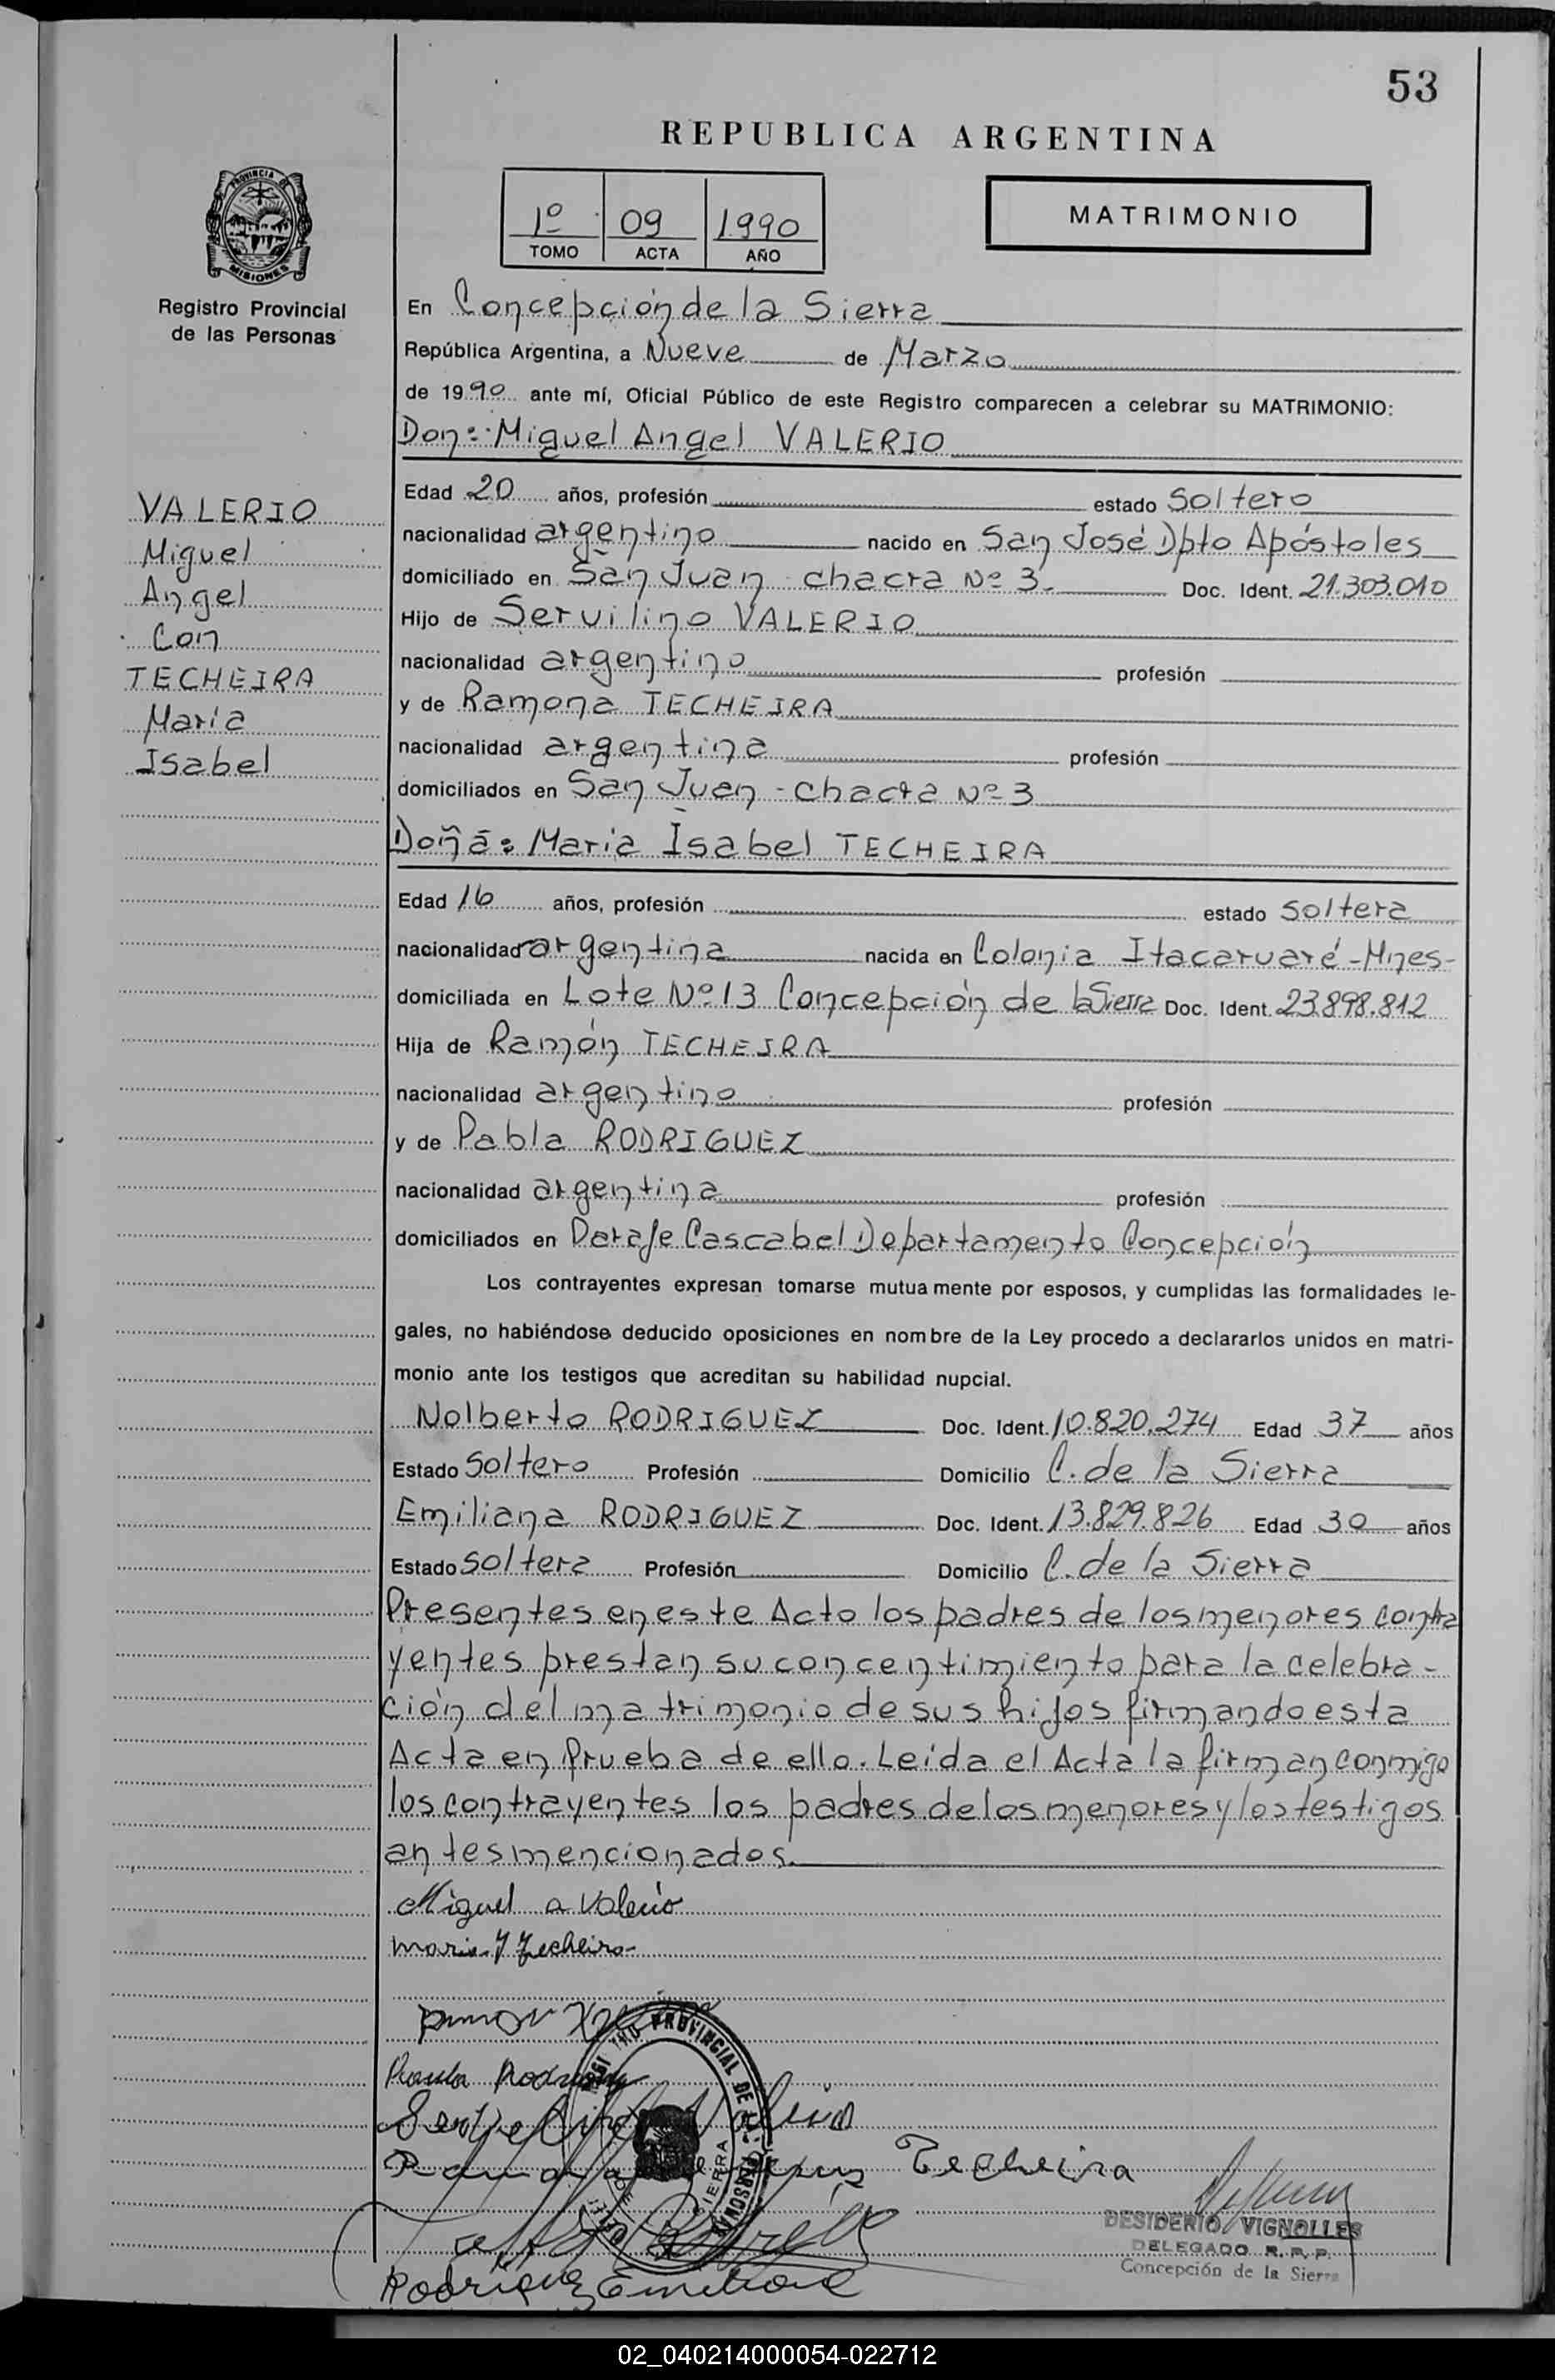 53
REPUBLICA ARGENTINA
PROVINCIA DE
MISIONES
Registro Provincial
de las Personas
1º 09 1990
TOMO ACTA AÑO
MATRIMONIO
En Concepción de la Sierra
República Argentina, a Nueve de Marzo
de 1990 ante mí, Oficial Público de este Registro comparecen a celebrar su MATRIMONIO:
Don: Miguel Angel VALERIO
VALERIO
Miguel
Angel
Con
TECHEIRA
María
Isabel
Edad 20 años, profesión estado Soltero
nacionalidad argentino nacido en San José Dpto Apóstoles
domiciliado en San Juan chacra Nº 3- Doc. Ident. 21.303.010
Hijo de Servilino VALERIO
nacionalidad argentino profesión
y de Ramona TECHEIRA
nacionalidad argentina profesión
domiciliados en San Juan - chacra Nº 3
Doña: María Isabel TECHEIRA
Edad 16 años, profesión estado soltera
nacionalidad argentina nacida en Colonia Itacaruaré-Mnes-
domiciliada en Lote Nº 13 Concepción de la Sierra Doc. Ident. 23.898.812
Hija de Ramón TECHEIRA
nacionalidad argentino profesión
y de Pabla RODRIGUEZ
nacionalidad argentina profesión
domiciliados en Paraje Cascabel Departamento Concepción
Los contrayentes expresan tomarse mutuamente por esposos, y cumplidas las formalidades le-
gales, no habiéndose deducido oposiciones en nombre de la Ley procedo a declararlos unidos en matri-
monio ante los testigos que acreditan su habilidad nupcial.
Nolberto RODRIGUEZ Doc. Ident. 10.820.274 Edad 37 años
Estado Soltero Profesión Domicilio C. de la Sierra
Emiliana RODRIGUEZ Doc. Ident. 13.829.826 Edad 30 años
Estado Soltera Profesión Domicilio C. de la Sierra
Presentes en este Acto los padres de los menores contra
yentes prestan su concentimiento para la celebra-
ción del matrimonio de sus hijos firmando esta
Acta en Prueba de ello. Leída el Acta la firman conmigo
los contrayentes los padres de los menores y los testigos
antes mencionados.
Miguel a Valerio
maria Y Techeira
PROVINCIAL DE
Techeira
DESIDERIO VIGNOLLES
DELEGADO R. P. P.
Concepción de la Sierra
Rodriguez Emiliana
02_040214000054-022712